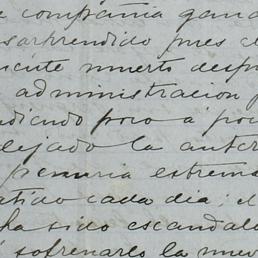 compañia gana
sorprendido pues e
muerto desp
administracion
diendo poco á po
dejado la anter
penuria extrema
atido cada dia; e
ha sido escandalo
sofrenarlo la nuev